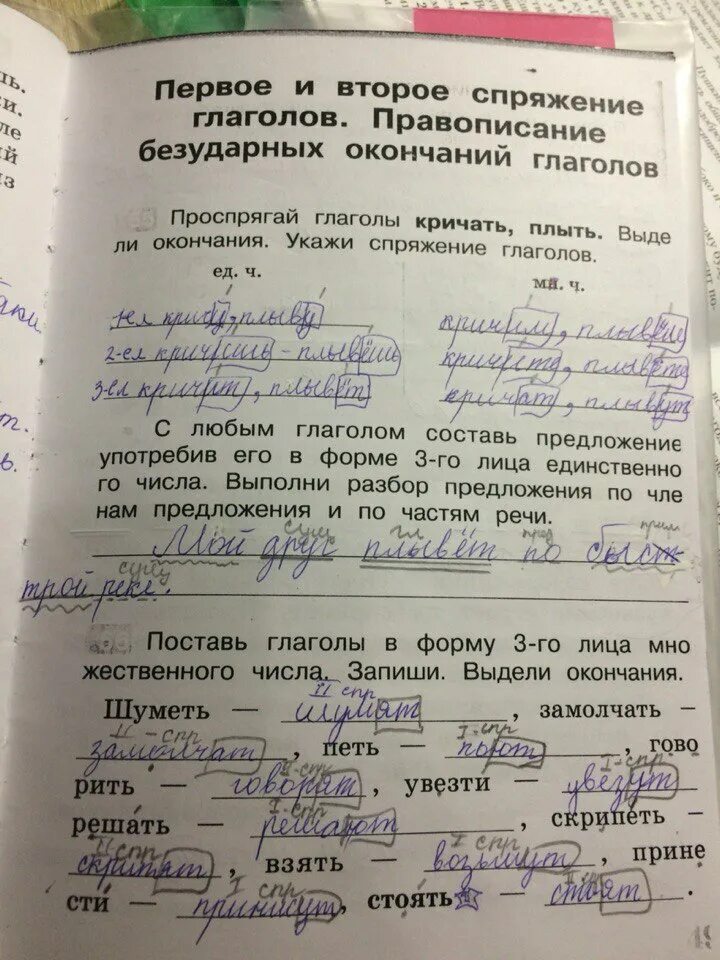 Первое и второе спряжение
глаголов. Правописание
безударных окончаний глаголов
Проспрягай глаголы кричать, плыть. Выде
ли окончания. Укажи спряжение глаголов.
ед. ч. мн. ч.
1-ел кричу, плыву кричим, плывёме
2-ел кричишь - плывёшь кричите, плывёте
3-ел кричит, плывёт кричат, плывут
С любым глаголом составь предложение
употребив его в форме 3-го лица единственно
го числа. Выполни разбор предложения по чле
нам предложения и по частям речи.
сущ гл пред прил
Мой друг плывёт по быст
сущ
трой реке.
Поставь глаголы в форму 3-го лица мно
жественного числа. Запиши. Выдели окончания.
II спр
Шуметь — шумят, замолчать –
II-спр I-спр
замолчат, петь — поют, гово
II-спр I-спр
рить — говорят, увезти — увезут
I-спр
решать — решают, скрипеть –
II спр I спр
скрипят, взять — возьмут, прине
I спр II
сти — принисут, стоять — стоят.